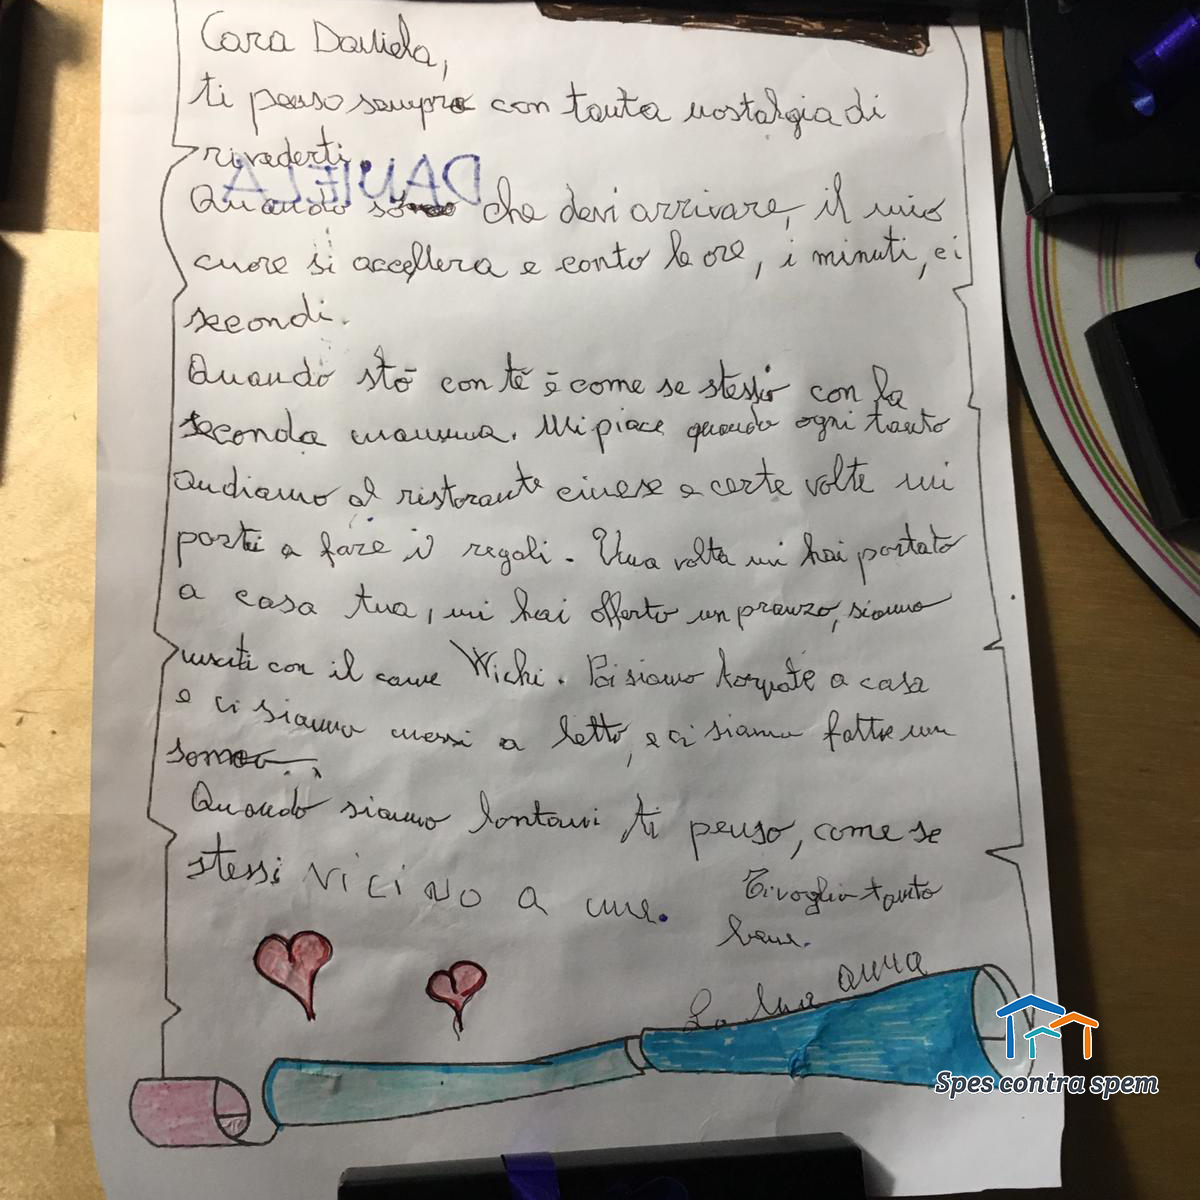 Cara Daniela,
ti penso sempre con tanta nostalgia di
rivederti.
DANIELA
Quando so che devi arrivare, il mio
cuore si accellera e conto le ore, i minuti, e i
secondi.
Quando stò con tè è come se stessio con la
seconda mamma. Mi piace quando ogni tanto
andiamo al ristorante cinese e certe volte mi
porti a fare i regali. Una volta mi hai portato
a casa tua, mi hai offerto un pranzo, siamo
usciti con il cane Wichi. Poi siamo tornate a casa
e ci siamo messi a letto, e ci siamo fatte un
sonno.
Quando siamo lontani ti penso, come se
stessi vicino a me.
Ti voglio tanto
bene.
La tua anna
Spes contra spem